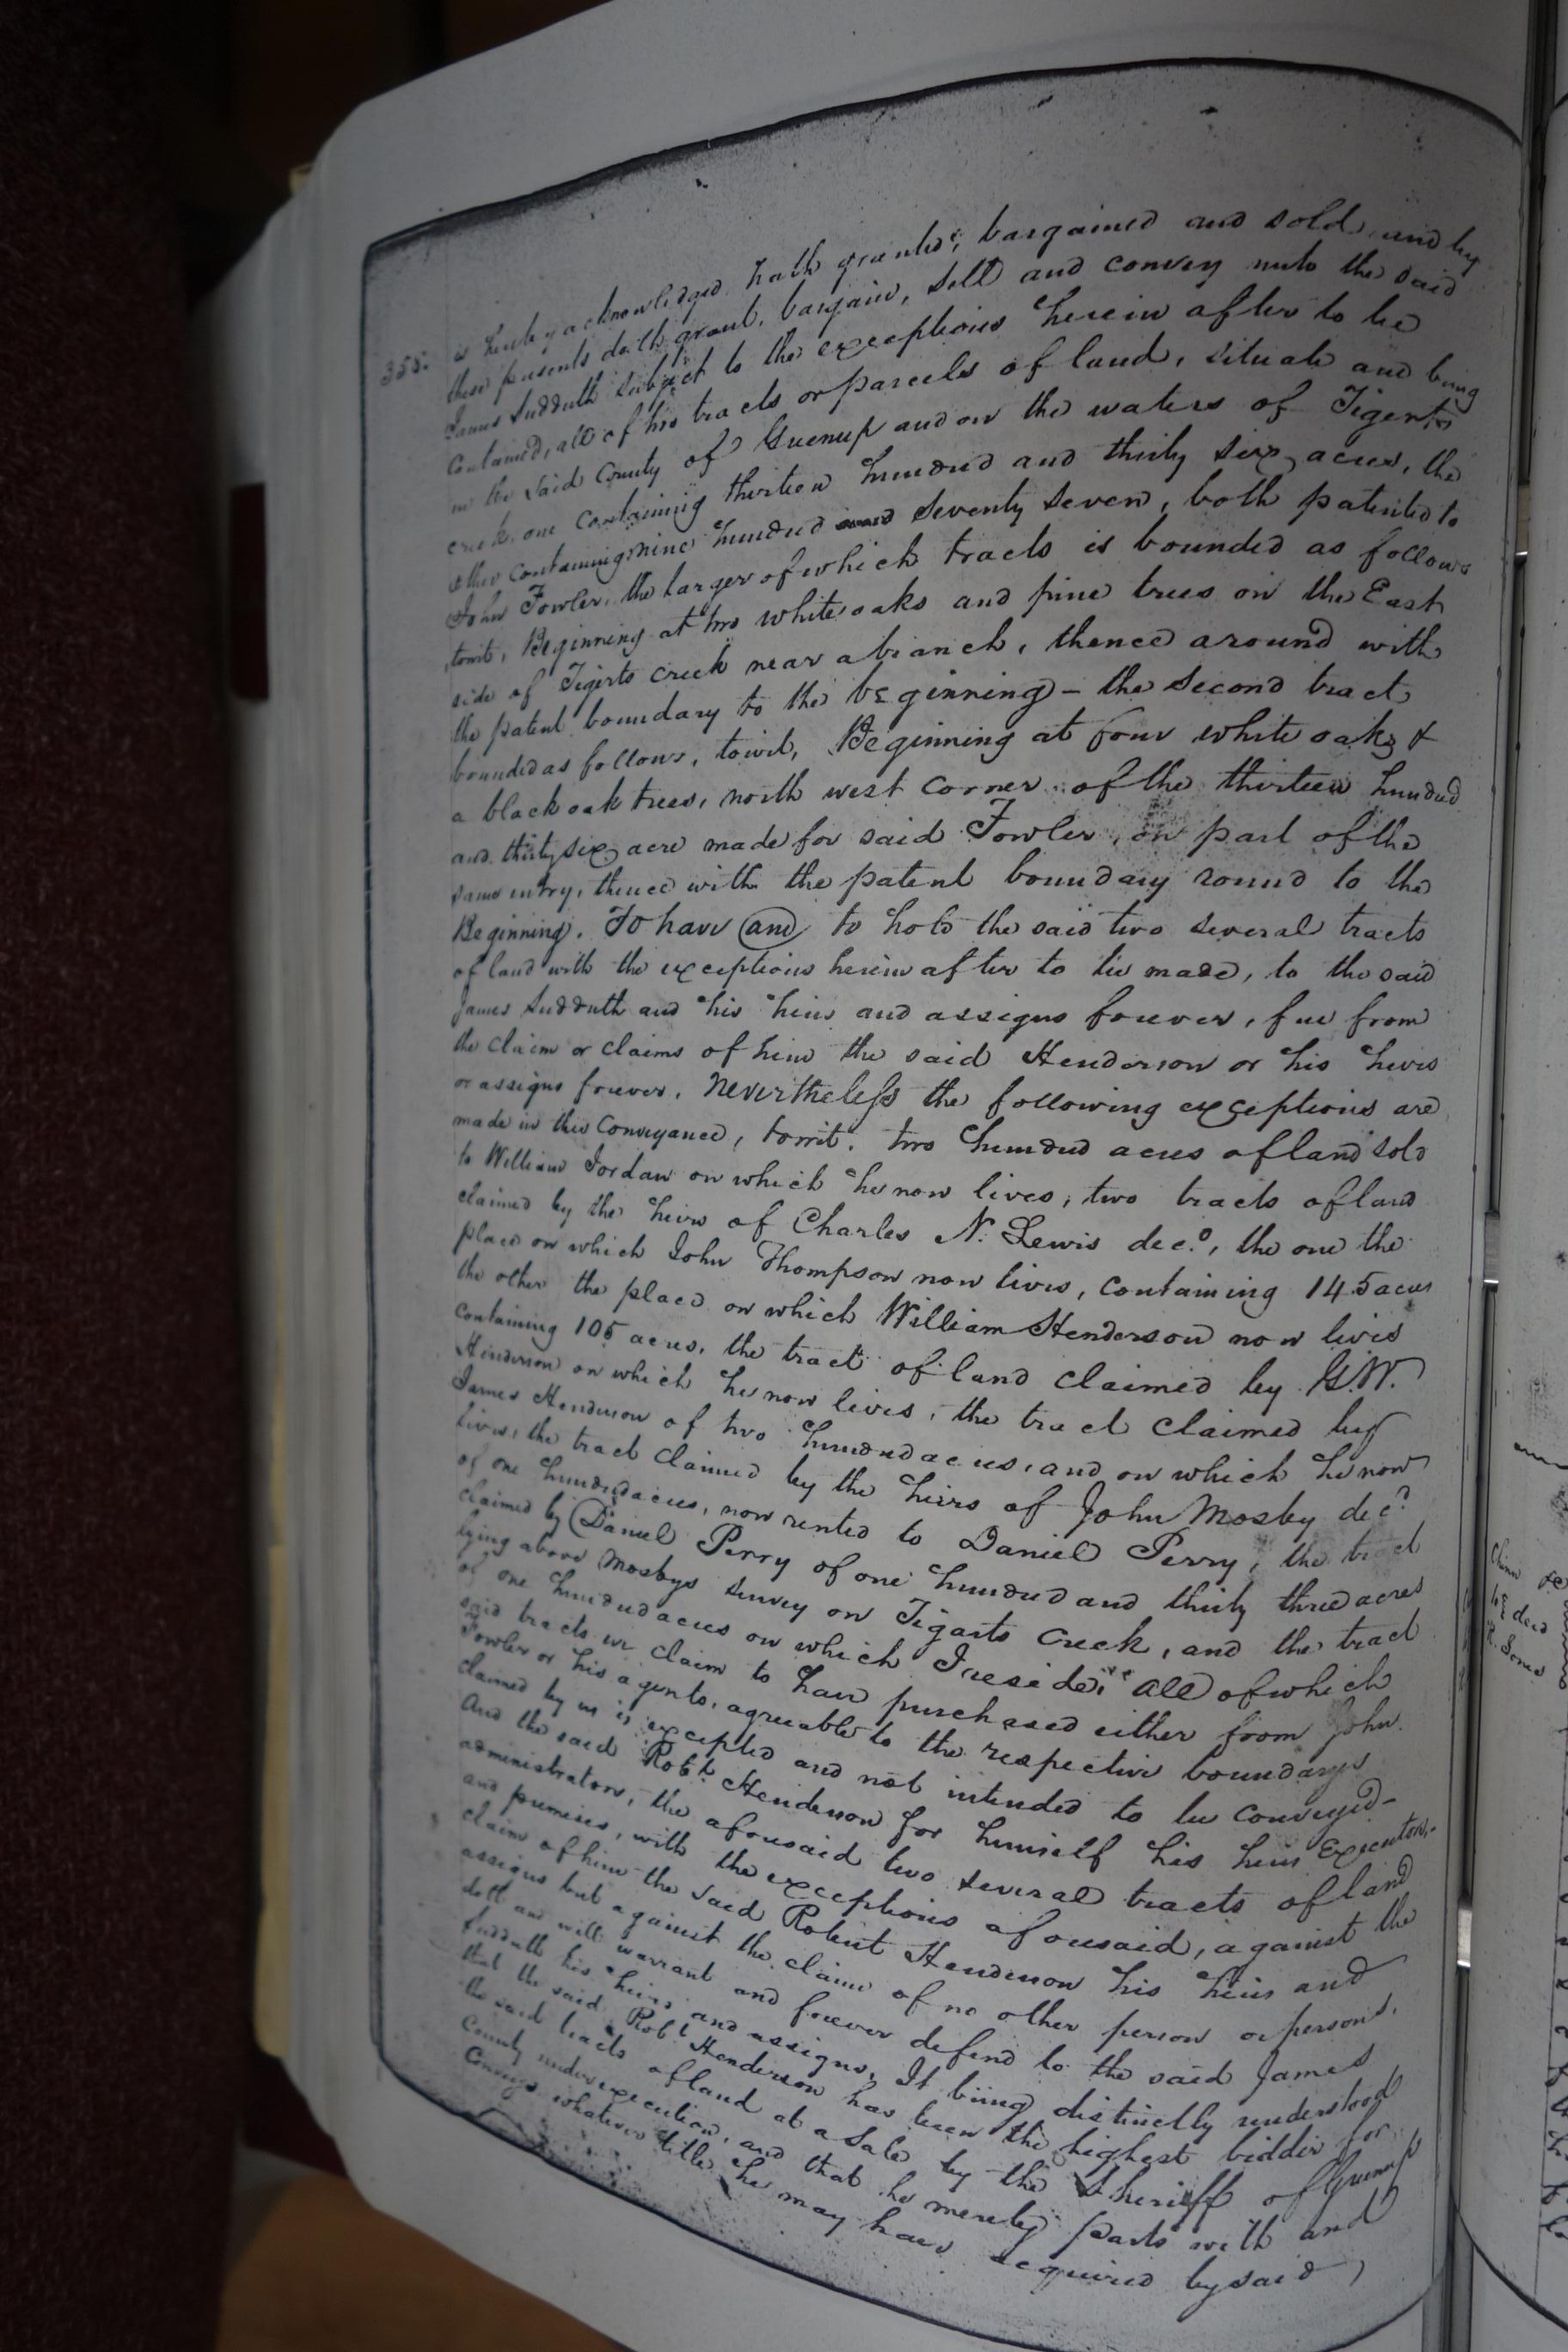 355.
is hereby acknowledged hath granted, bargained and sold, and by
these presents doth grant, bargain, sell and convey unto the said
James Sudduth subject to the exceptions herein after to be
Contained, all of his tracts or parcels of land, situate and being
in the said County of Greenup and on the waters of Tigerts
creek, one containing thirteen hundred and thirty six acres, the
other containing nine hundred and seventy seven, both patented to
John Fowler, the larger of which tracts is bounded as follows
towit, Beginning at two white oaks and pine trees on the East
side of Tigerts creek near a branch, thence around with
the patent boundary to the beginning – the second tract
bounded as follows, towit, Beginning at four white oaks &
a black oak trees, north west corner of the thirteen hundred
and thirty six acre made for said Fowler, on part of the
same entry, thence with the patent boundary round to the
Beginning. To have and to hold the said two several tracts
of land with the exceptions herein after to be made, to the said
James Sudduth and his heirs and assigns forever, free from
the claim or claims of him the said Henderson or his heirs
or assigns forever. Nevertheless the following exceptions are
made in this Conveyance, towit. two hundred acres of land sold
to William Jordan on which he now lives, two tracts of land
claimed by the heirs of Charles N. Lewis decd., the one the
place on which John Thompson now lives, containing 145 acres
the other the place on which William Henderson now lives
containing 105 acres, the tract of land claimed by G.W.
Henderson on which he now lives, the tract claimed by
James Henderson of two hundred acres, and on which he now
lives, the tract claimed by the heirs of John Mosby decd
of one hundred acres, now rented to Daniel Perry, the tract
claimed by Daniel Perry of one hundred and thirty three acres
lying above Mosbys survey on Tigarts Creek, and the tract
of one hundred acres on which I reside, all of which
said tracts we claim to have purchased either from John
Fowler or his agents, agreeable to the respective boundarys
claimed by us is excepted and not intended to be conveyed–
And the said Robt. Henderson for himself his heirs Executors,
administrators, the aforesaid two several tracts of land
and premises, with the exceptions aforesaid, against the
claim of him the said Robert Henderson his heirs and
assigns but against the claim of no other person or persons,
doth and will warrant and forever defend to the said James
Sudduth his heirs and assigns, It being distinctly understood
that the said Robt. Henderson has been the highest bidder for
the said tracts of land at a Sale by the Sheriff of Greenup
County under execution, and that he merely parts with and
conveys whatever title he may have acquired by said